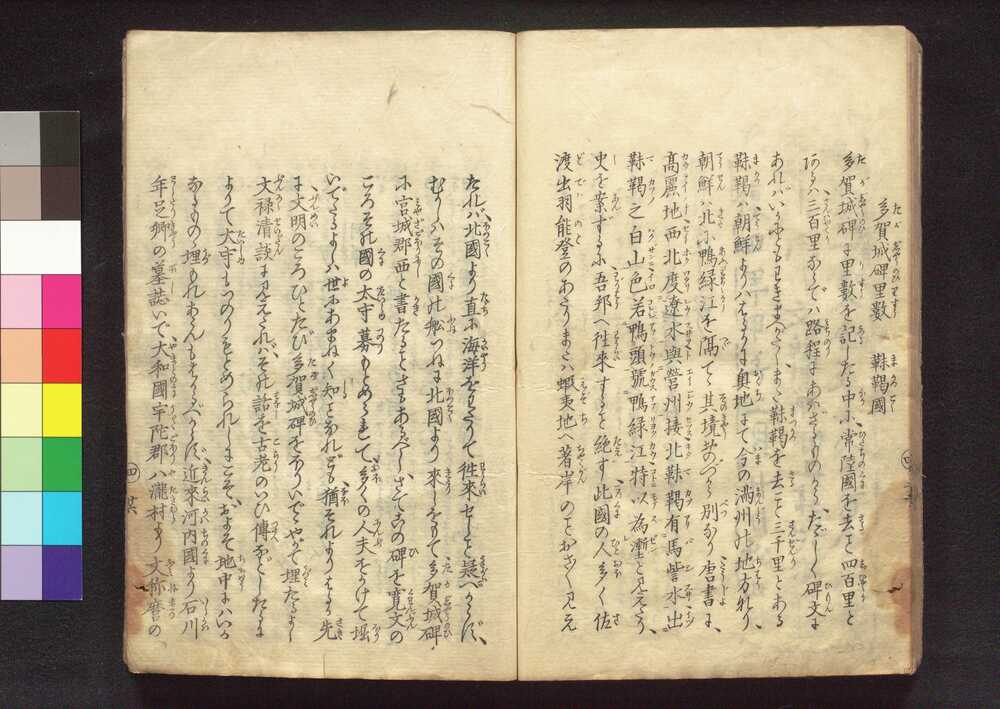 多賀城碑里数　靺鞨國
多賀城碑に里数を記したる中に、常陸國を去こと四百里と
あるハ三百里なるべし路程にあハざるものから、たゞしく碑文に
あれバいかにともわきまへがたし、また靺鞨を去こと三千里とある
靺鞨ハ朝鮮よりハはるかに奥地にて今の満州の地方なり、
朝鮮ハ北に鴨緑江を隔て、其境おのづから別なり唐書に、
髙麗地西北度遼水與營州接北靺鞨有馬訾水出
靺鞨之白山色若鴨頭號鴨緑江特以為漸と見えたり、
史を案ずるに吾邦へ往来すること絶ず此國の人多く佐
渡出羽能登のあたりまたハ蝦夷地へ著岸のことおほく見え
たれバ、北國より直に海洋をわたりて徃来せしこと疑べからず、
むかしハその國の舩つねに北國より来しをもて多賀城碑
に宮城郡西と書たることさもあるべし、さてこの碑を寛文の
ころその國の太守募もとめられて、多くの人夫をかけて堀
いでたるよしハ世にあまねく知ことなれども猶それよりはるか先
に、文明のころひとたび多賀城碑をほりいでゝやがて埋たるよし
文禄清談に見えたれハその話を古老のいひ傳などしたるに
よりて太守もいのりもとめられしにこそ、およそ地中にハいか
なるもの埋もれあらんもはかるべからず、近来河内國より石川
年足卿の墓誌いで、大和國宇陀郡八瀧村より文祢麿の
四 其